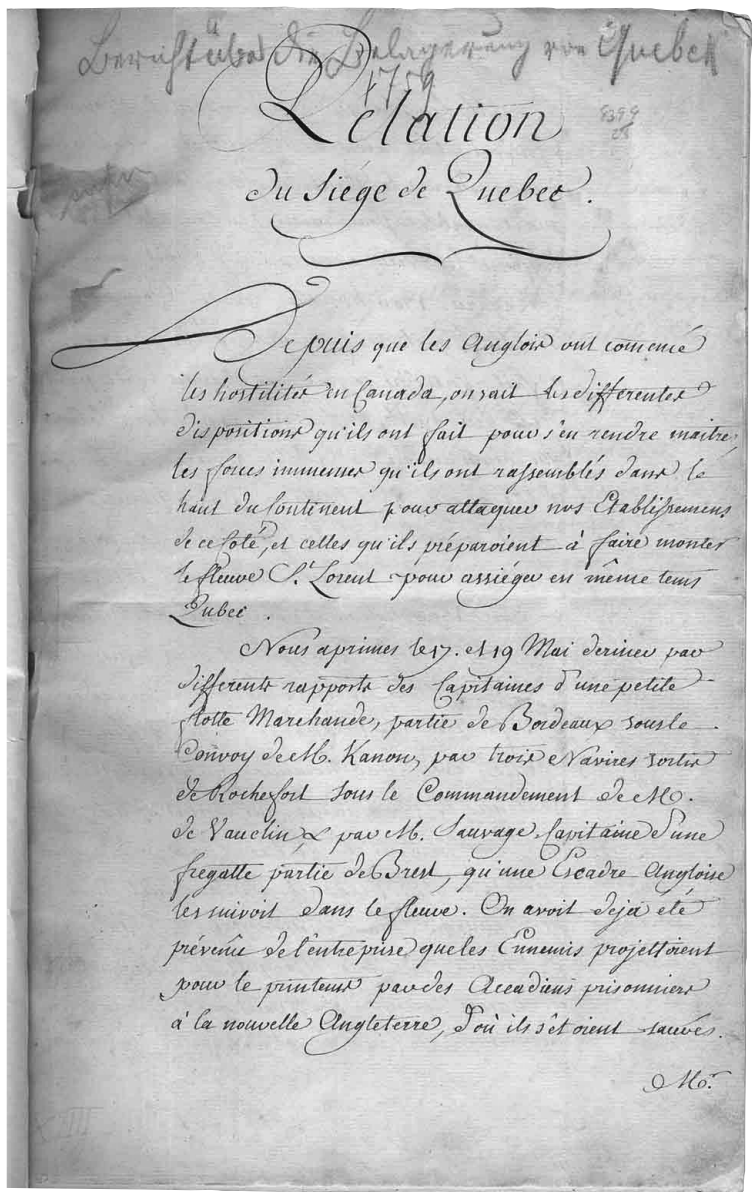 Bericht über die Belagerung von Quebek
1759
Relation
du Siége de Quebec.
Depuis que les Anglois ont comencé
les hostilités en Canada, on sait les differentes
dispositions qu'ils ont fait pour s'en rendre maitre,
les forces immenses qu'ils ont rassemblés dans le
haut du Continent pour attaquer nos Etablissemens
de ce Coté, et celles qu'ils préparoient à faire monter
le fleuve St. Lorent pour assiéger en même tems
Qubec.
Nous aprimes le 17. et 19 Mai dernier par
differents rapports des Capitaines d'une petite
flotte Marchande, partie de Bordeaux sous le
Convoy de M. Kanon, par trois Navires sortis
de Rochefort sous le Commandement de M.
de Vauclin, & par M. Sauvage Capitaine d'une
fregatte partie de Brest, qu'une Escadre Angloise
les suivoit dans le fleuve. On avoit deja été
prévenu de l'entreprise que les Ennemis projettoient
pour le printems par des Accadiens prisonniers
à la nouvelle Angleterre, d'où ils s'étoient sauvés.
Mr.